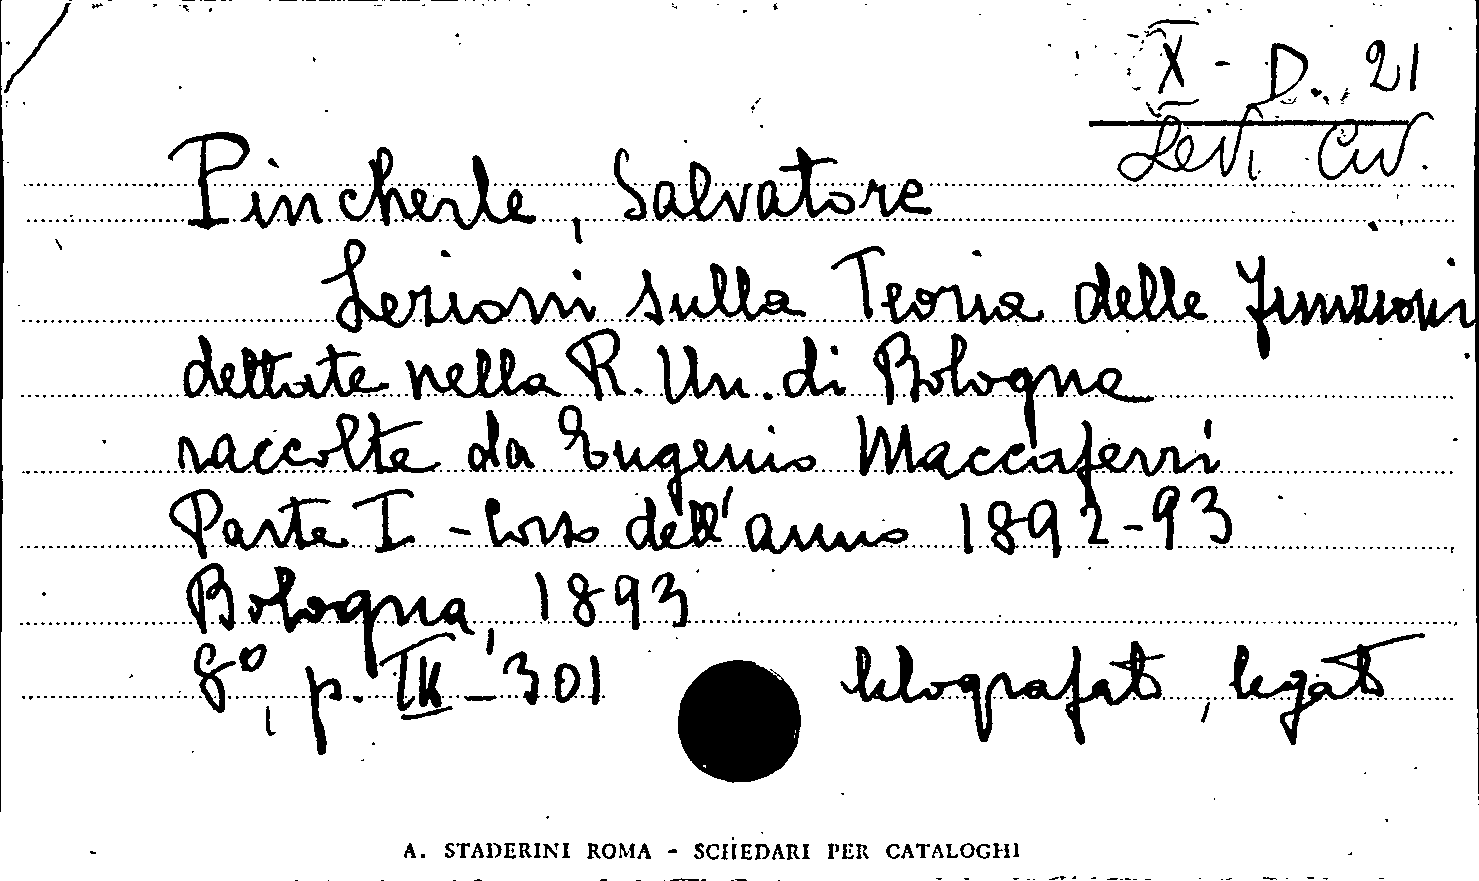 X - D. 21
Levi Civ.
Pincherle, Salvatore
Lezioni sulla Teoria delle funzioni
dettate nella R. Un. di Bologna
raccolte da Eugenio Maccaferri
Parte I - Corso dell'anno 1892-93
Bologna, 1893
8°, p. IX-301 litografato, legato
A. STADERINI ROMA - SCHEDARI PER CATALOGHI